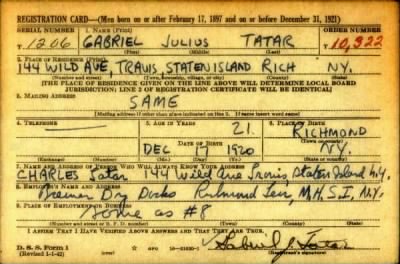 REGISTRATION CARD—(Men born on or after February 17, 1897 and on or before December 31, 1921)
SERIAL NUMBER 1. NAME (Print) ORDER NUMBER
T 1206 GABRIEL JULIUS TATAR T 10,322
(First) (Middle) (Last)
2. PLACE OF RESIDENCE (Print)
144 WILD AVE, TRAVIS STATEN ISLAND RICH N.Y.
(Number and street) (Town, township, village, or city) (County) (State)
[THE PLACE OF RESIDENCE GIVEN ON THE LINE ABOVE WILL DETERMINE LOCAL BOARD
JURISDICTION; LINE 2 OF REGISTRATION CERTIFICATE WILL BE IDENTICAL]
3. MAILING ADDRESS
SAME
[Mailing address if other than place indicated on line 2. If same insert word same]
4. TELEPHONE 5. AGE IN YEARS 6. PLACE OF BIRTH
— 21. RICHMOND
DATE OF BIRTH (Town or county)
DEC 17 1920 N.Y.
(Exchange) (Number) (Mo.) (Day) (Yr.) (State or country)
7. NAME AND ADDRESS OF PERSON WHO WILL ALWAYS KNOW YOUR ADDRESS
CHARLES Tatar 144 Wild Ave Travis, Staten Island N.Y.
8. EMPLOYER'S NAME AND ADDRESS
Dry Docks Richmond N.Y.
9. PLACE OF EMPLOYMENT OR BUSINESS
Same as #8
(Number and street or R. F. D. number) (Town) (County) (State)
I AFFIRM THAT I HAVE VERIFIED ABOVE ANSWERS AND THAT THEY ARE TRUE.
D. S. S. Form 1
(Revised 1-1-42) (over) GPO Gabriel J. Tatar
(Registrant's signature)